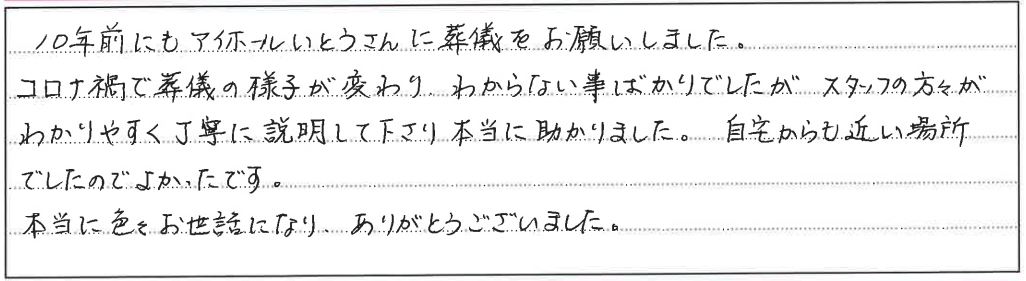 10年前にもアイホールいとうさんに葬儀をお願いしました。
コロナ禍で葬儀の様子が変わり、わからない事ばかりでしたが スタッフの方々が
わかりやすく丁寧に説明して下さり本当に助かりました。 自宅からも近い場所
でしたのでよかったです。
本当に色々お世話になり、ありがとうございました。